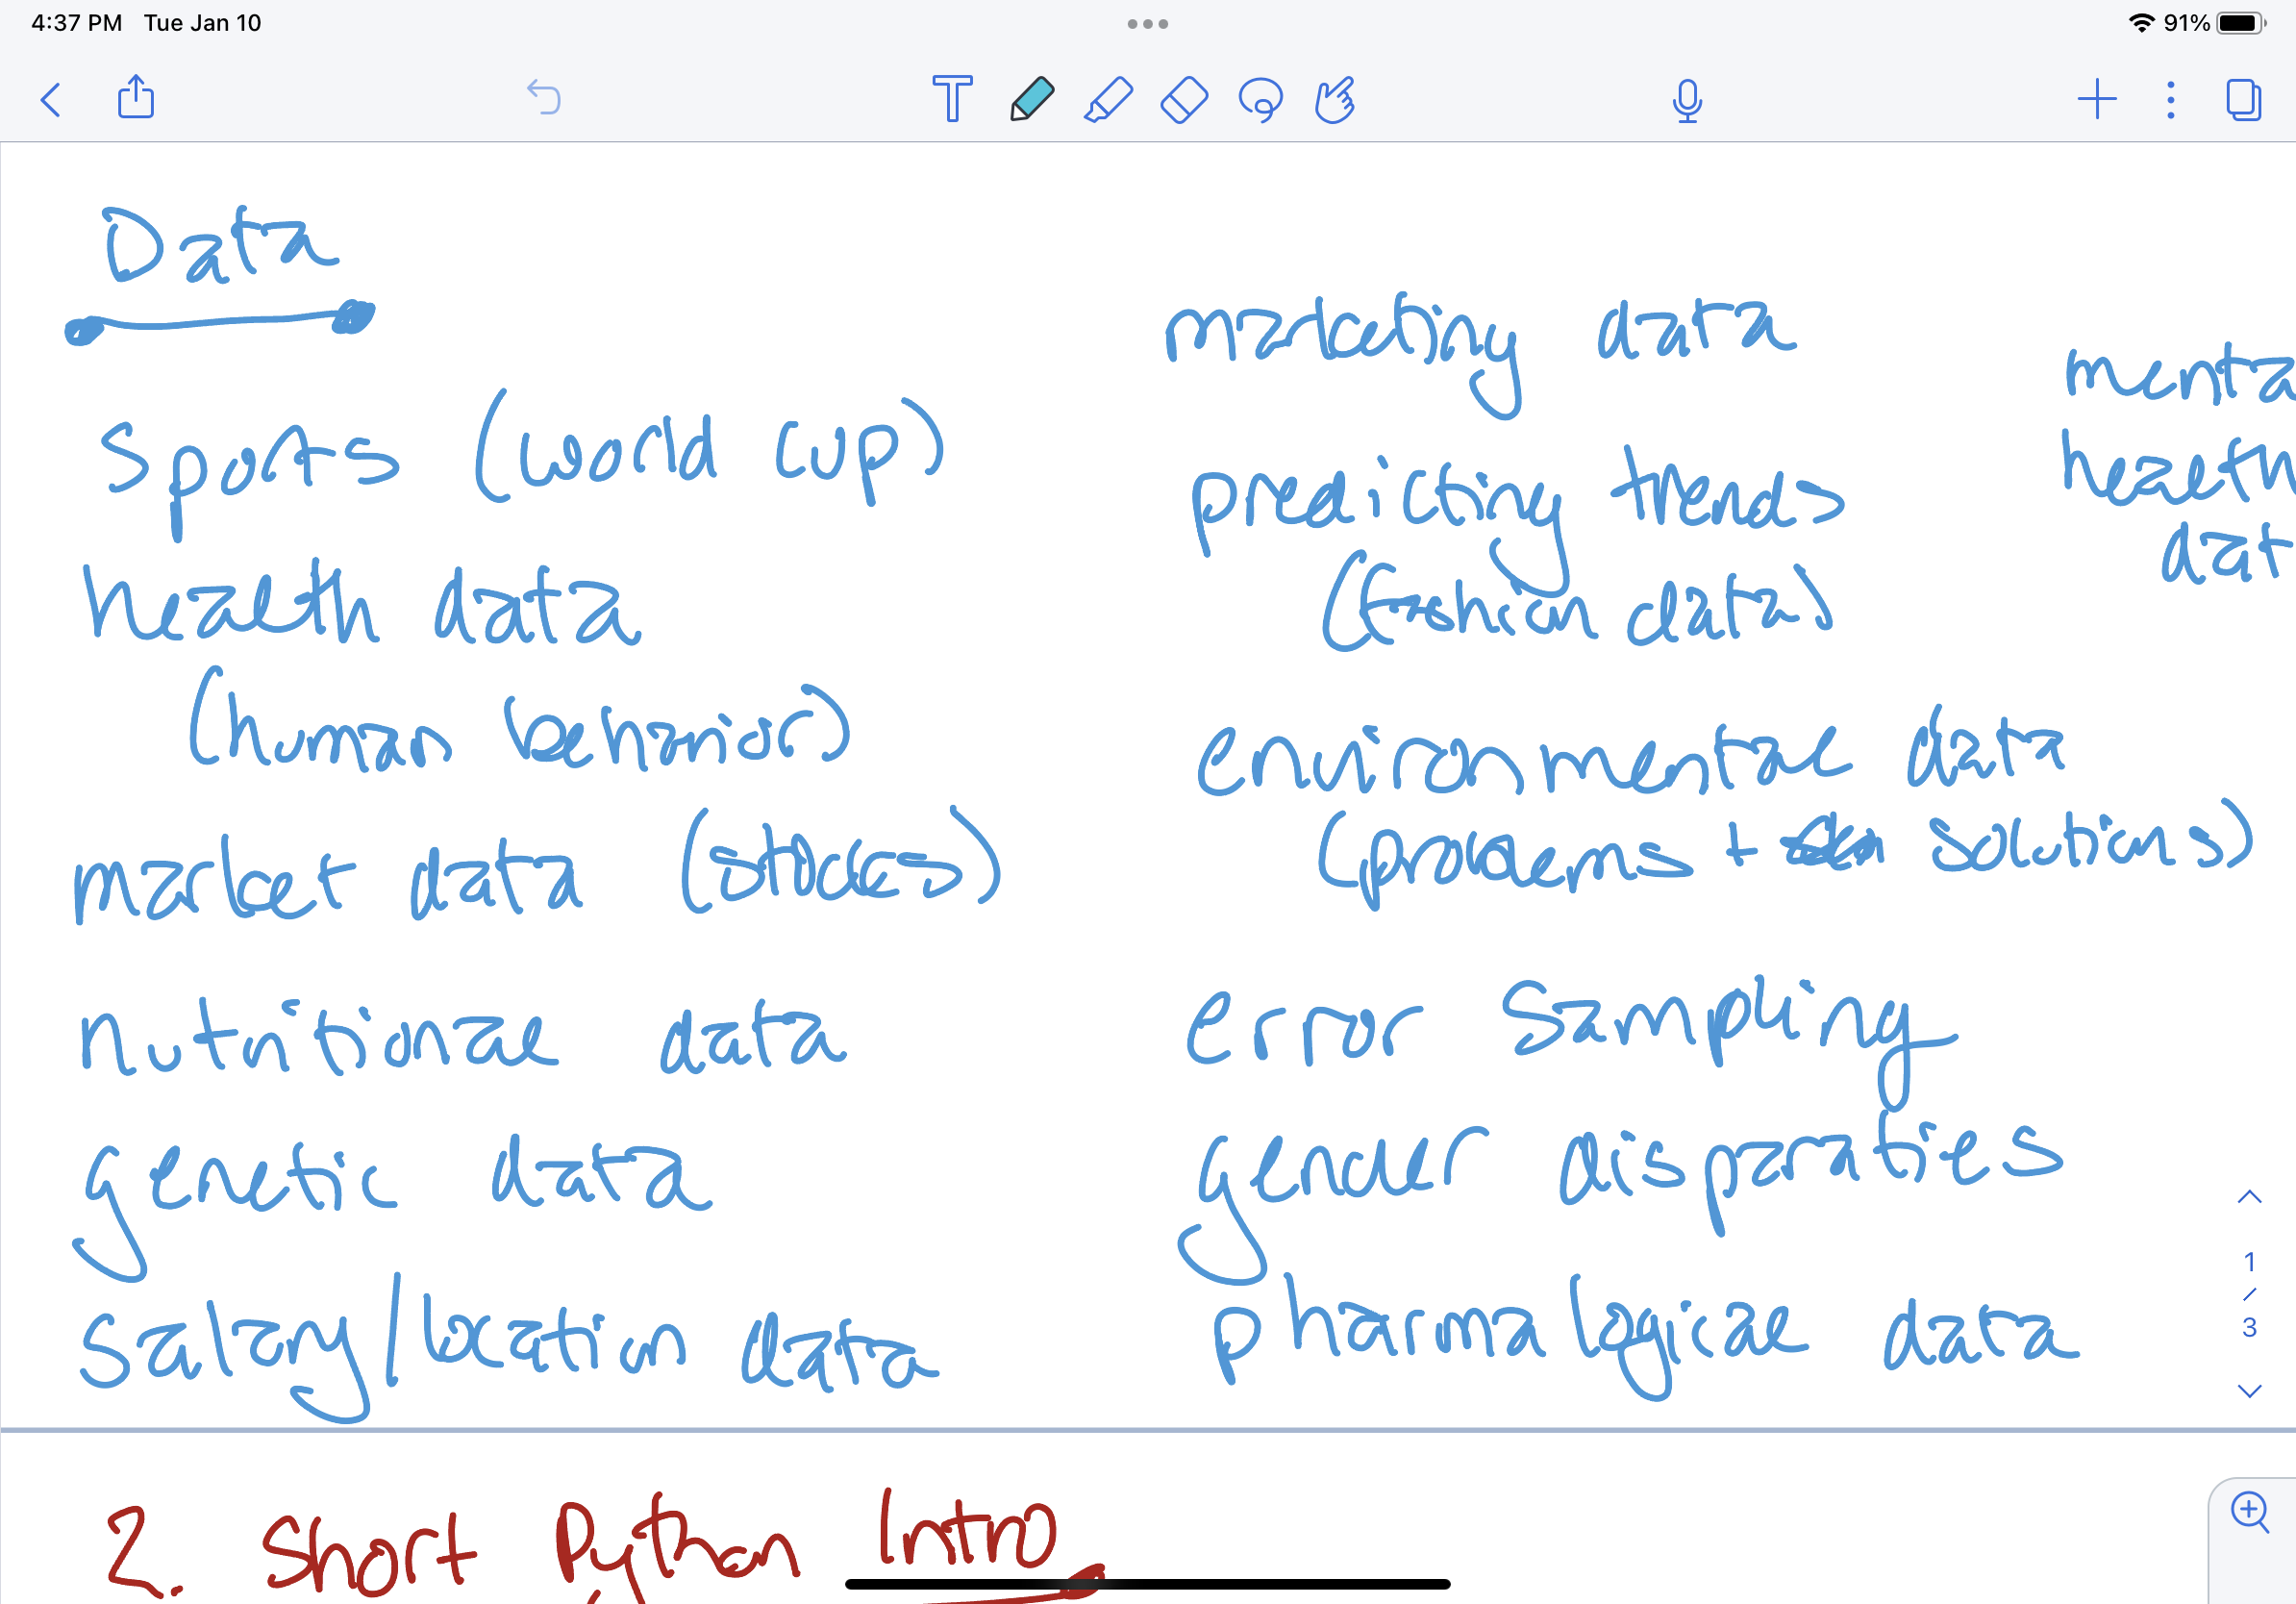 4:37 PM Tue Jan 10
91%
Data
sports (world cup)
health data
(human behavior)
market data (stocks)
nutritional data
genetic data
salary/location data
marketing data
predicting trends
(fashion data)
environmental data
(problems + solutions)
error sampling
gender disparaties
pharmalogical data
menta
health
dat
1
3
2. Short Python Intro